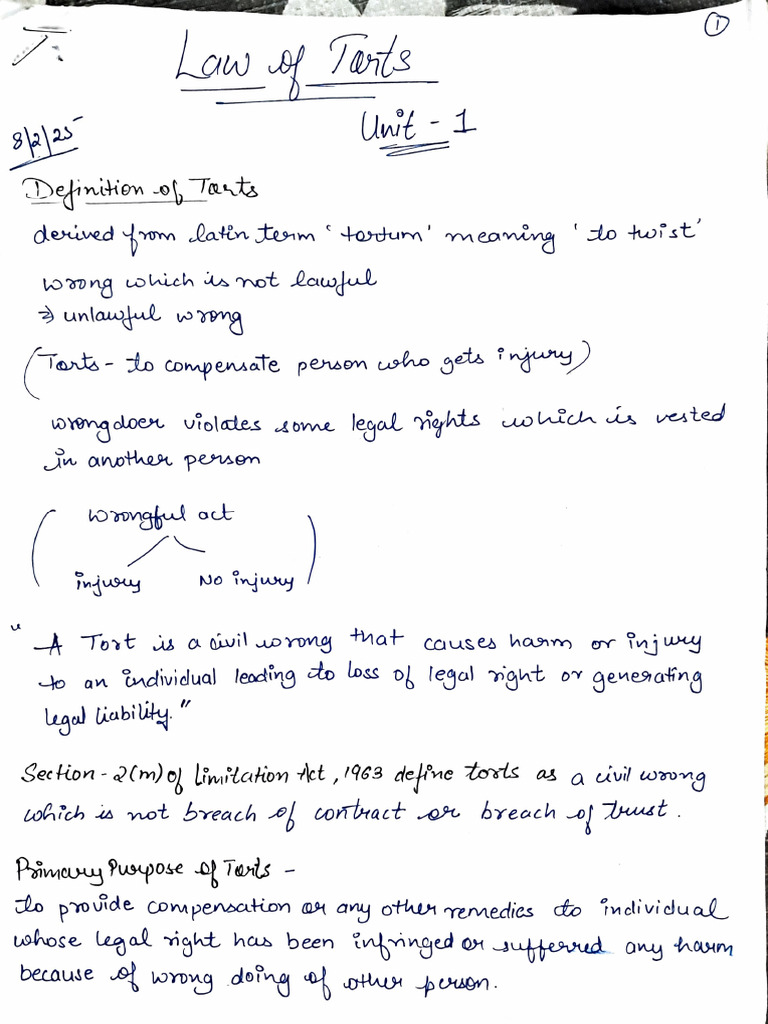 1
Law of Torts
Unit - 1
8/2/25
Definition of Torts
derived from latin term 'tortum' meaning 'to twist'
wrong which is not lawful
⇒ unlawful wrong
(Torts - to compensate person who gets injury)
wrongdoer violates some legal rights which is vested
in another person
wrongful act
injury No injury
"A Tort is a civil wrong that causes harm or injury
to an individual leading to loss of legal right or generating
legal liability."
Section - 2(m) of Limitation Act, 1963 define torts as a civil wrong
which is not breach of contract or breach of trust.
Primary Purpose of Torts -
to provide compensation or any other remedies to individual
whose legal right has been infringed or sufferred any harm
because of wrong doing of other person.